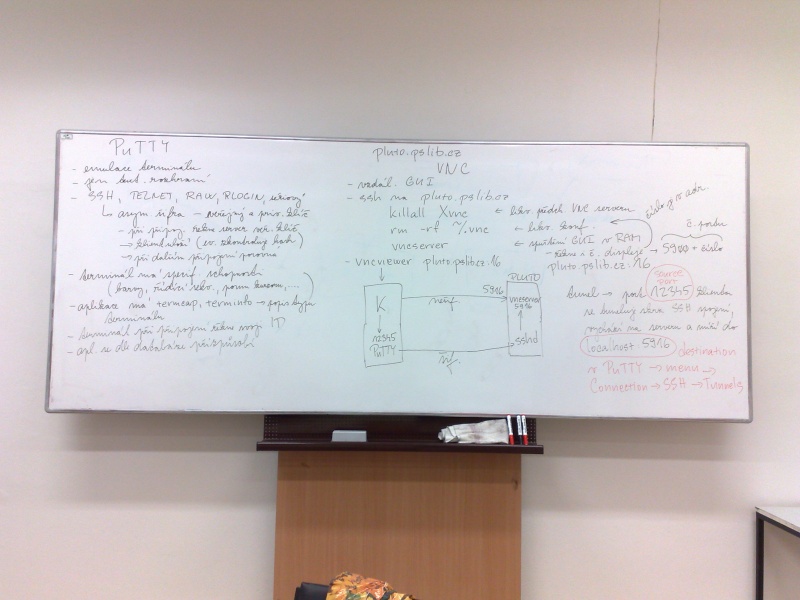 PuTTY
- emulace terminálu
- jen text. rozhraní
- SSH, TELNET, RAW, RLOGIN,
asym. šifra - veřejný a priv. klíč
- při připoj. řekne server veř. klíč
→ klient uloží (ev. zkontroluj hash)
→ při dalším připojení porovná
- terminál má specif. schopnosti
(barvy, řídící sekv., posun kurzoru, ...)
- aplikace má termcap, terminfo → popis typu
terminálu
- terminál při připojení řekne svoji ID
- apl. se dle databáze přizpůsobí
pluto.pslib.cz
VNC
- vzdál. GUI
- ssh na pluto.pslib.cz
killall Xvnc ← likv. předch. VNC serveru
rm -rf ~/.vnc ← likv. konf.
vncserver ← spuštění GUI v RAM
→ řekne i č. displeje → 5900 + číslo
číslo v adr.
č. portu
- vncviewer pluto.pslib.cz:16
pluto.pslib.cz:16
K
12345
PuTTY
nešif.
šif.
PLUTO
5916
vncserver
5916
sshd
source
port
tunel → port 12345 klienta
se tuneluje skrz SSH spojení,
na serveru a míří do
localhost 5916 destination
v PuTTY → menu →
Connection → SSH → Tunnels